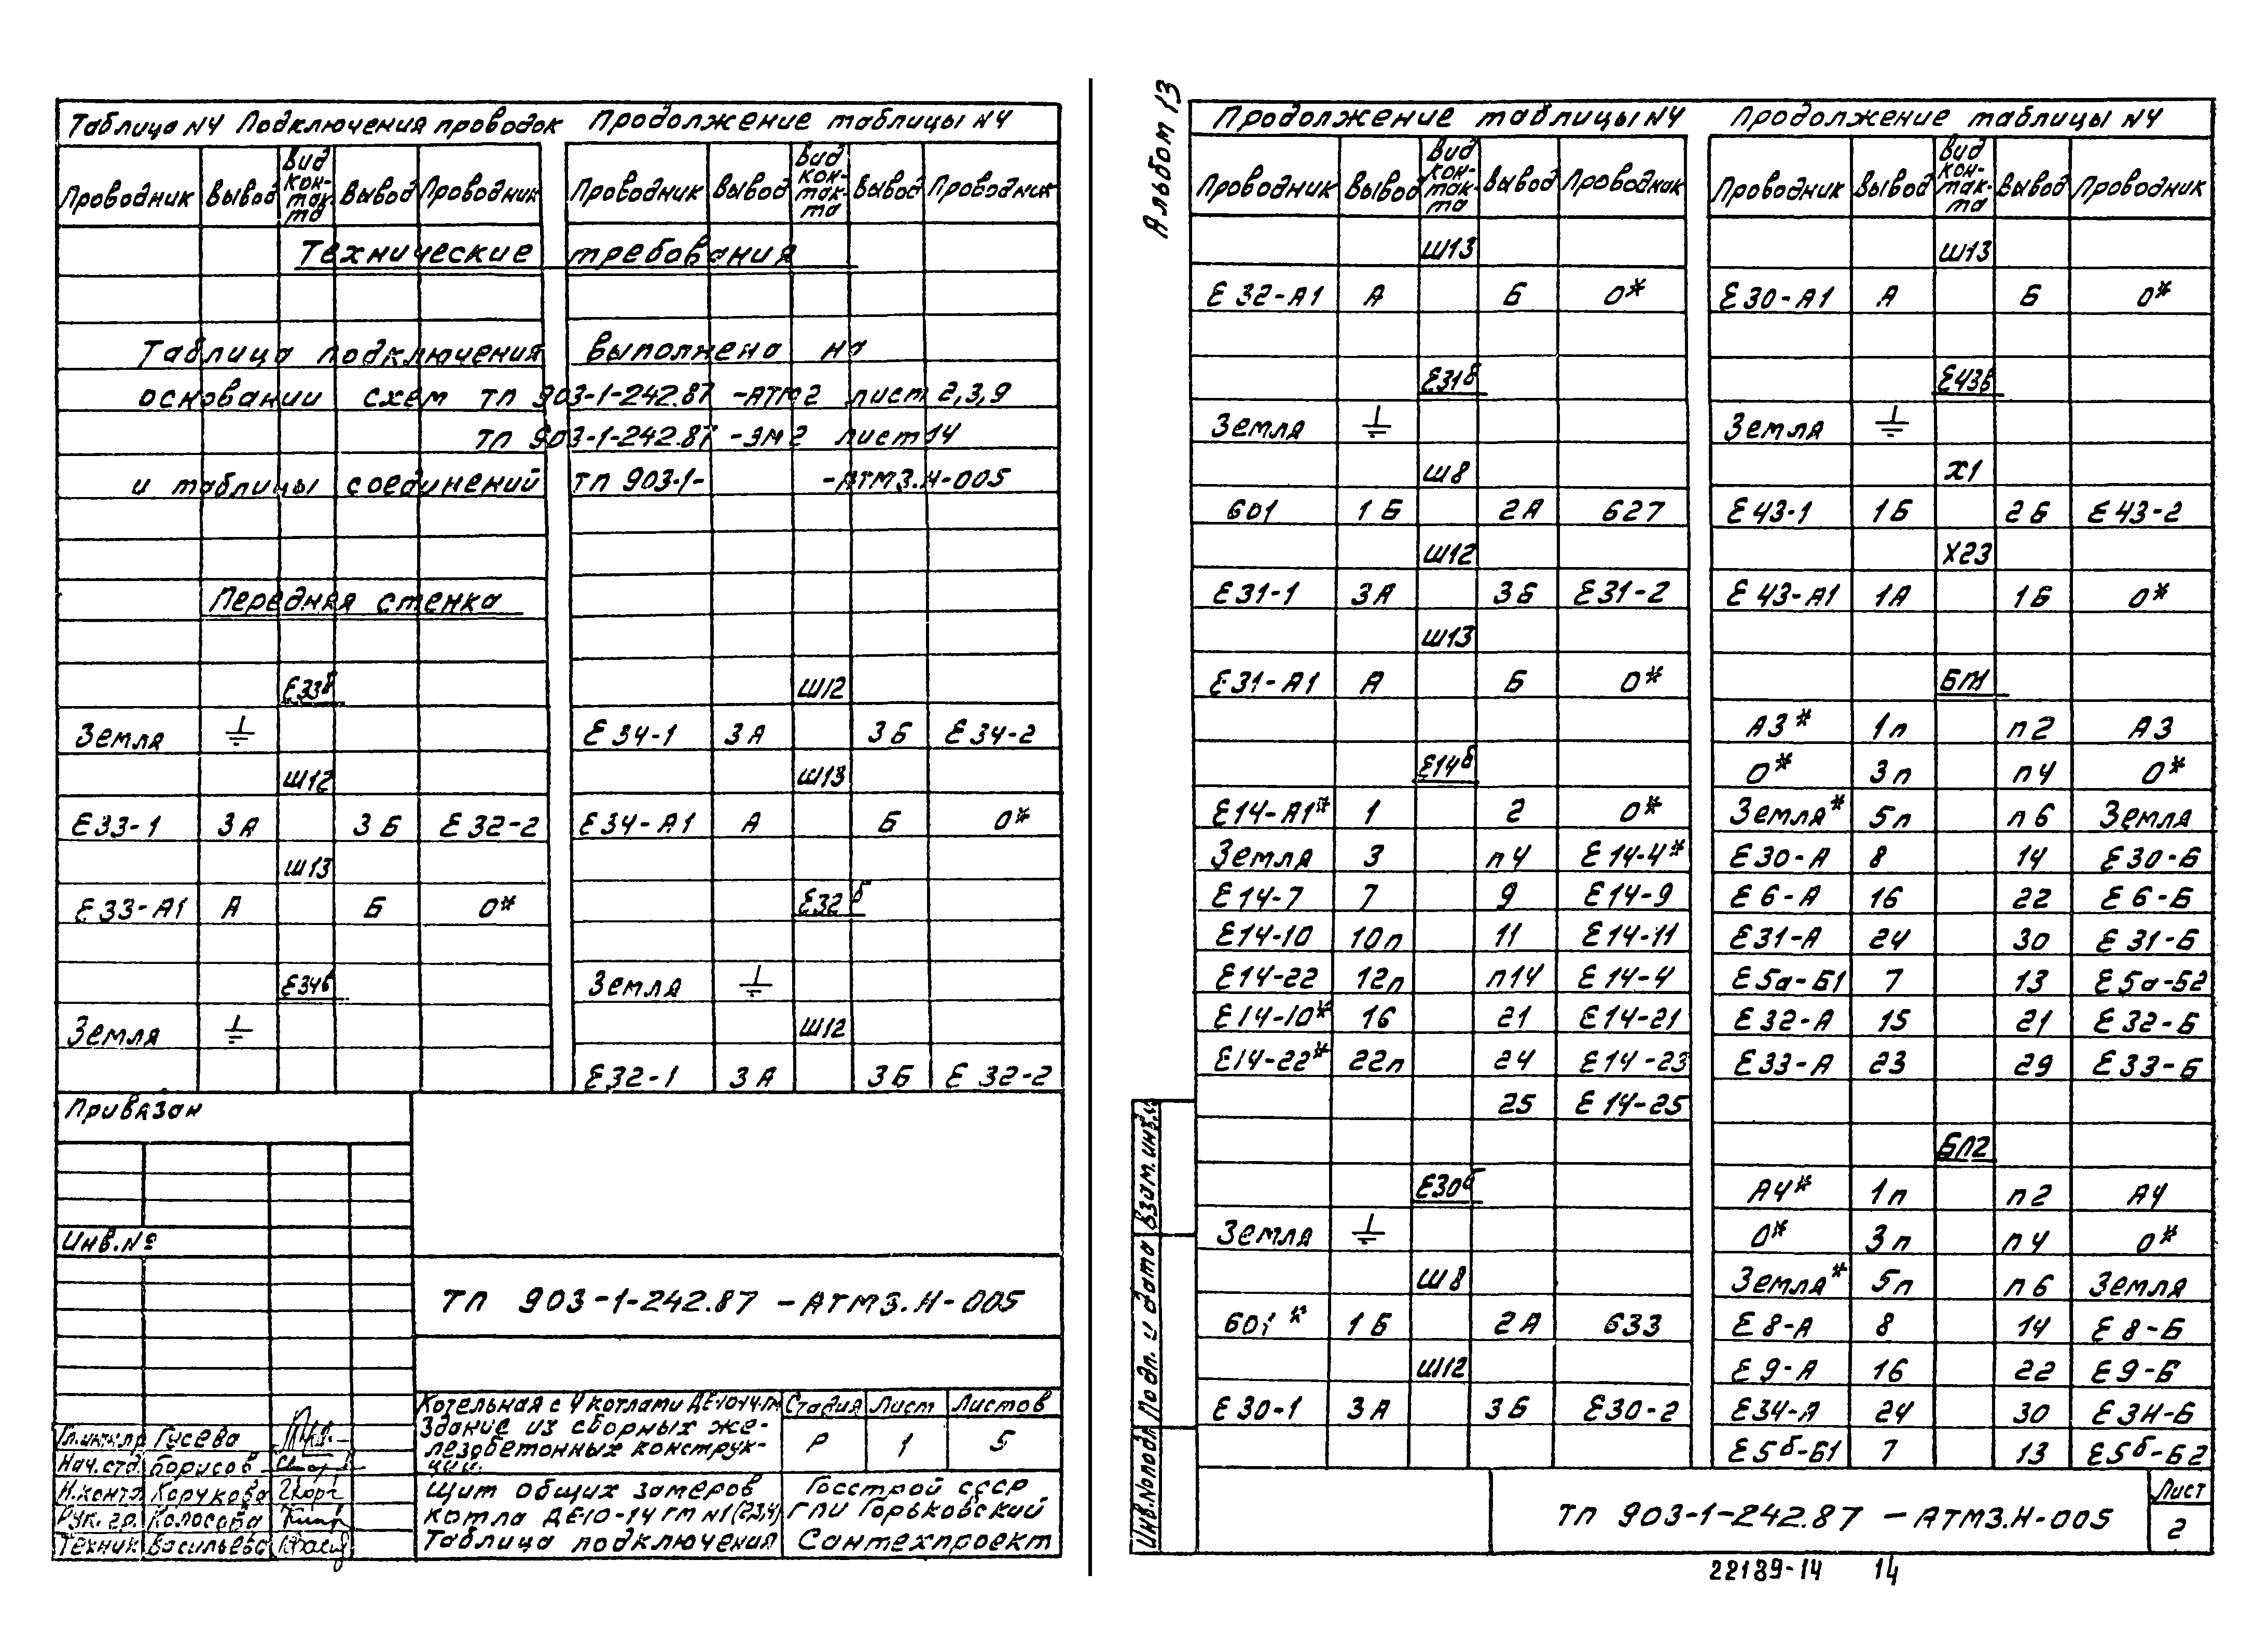 Таблица N4 Подключения проводок Продолжение таблицы N4
Проводник Вывод Вид кон-так-та Вывод Проводник Проводник Вывод Вид кон-так-та Вывод Проводник
Технические требования
Таблица подключения выполнена на
основании схем ТП 903-1-242.87 -АТМ2 лист 2,3,9
ТП 903-1-242.87 -ЭМ2 лист 14
и таблицы соединений ТП 903-1- -АТМ3.Н-005
Передняя стенка
Е33б
Земля ⏚
Ш12
Е33-1 3А 3Б Е32-2
Ш13
Е33-А1 А Б 0*
Е34б
Земля ⏚
Ш12
Е34-1 3А 3Б Е34-2
Ш13
Е34-А1 А Б 0*
Е32б
Земля ⏚
Ш12
Е32-1 3А 3Б Е32-2
Привязан
Инв.№
ТП 903-1-242.87 -АТМ3.Н-005
Котельная с 4 котлами ДЕ-10-14ГМ
Здание из сборных же-
лезобетонных конструк-
ций.
Стадия Лист Листов
Р 1 5
Гл.инж.пр Гусева
Нач.отд. Борисов
Н.контр Корчкова
Рук. гр. Колосова
Техник Васильева
Щит общих замеров
котла ДЕ-10-14 ГМ N1(2,3,4)
Таблица подключения
Госстрой СССР
ГПИ Горьковский
Сантехпроект
Альбом 13
Продолжение таблицы N4 Продолжение таблицы N4
Проводник Вывод Вид кон-так-та Вывод Проводник Проводник Вывод Вид кон-так-та Вывод Проводник
Ш13
Е32-А1 А Б 0*
Е31б
Земля ⏚
Ш8
601 1Б 2А 627
Ш12
Е31-1 3А 3Б Е31-2
Ш13
Е31-А1 А Б 0*
Е14б
Е14-А1* 1 2 0*
Земля 3 п4 Е14-4*
Е14-7 7 9 Е14-9
Е14-10 10п 11 Е14-11
Е14-22 12п п14 Е14-4
Е14-10* 16 21 Е14-21
Е14-22* 22п 24 Е14-23
25 Е14-25
Е30б
Земля ⏚
Ш8
601* 1Б 2А 633
Ш12
Е30-1 3А 3Б Е30-2
Ш13
Е30-А1 А Б 0*
Е43б
Земля ⏚
Х1
Е43-1 1Б 2Б Е43-2
Х23
Е43-А1 1А 1Б 0*
БП1
А3* 1п п2 А3
0* 3п п4 0*
Земля* 5п п6 Земля
Е30-А 8 14 Е30-Б
Е6-А 16 22 Е6-Б
Е31-А 24 30 Е31-Б
Е5а-Б1 7 13 Е5а-Б2
Е32-А 15 21 Е32-Б
Е33-А 23 29 Е33-Б
БП2
А4* 1п п2 А4
0* 3п п4 0*
Земля* 5п п6 Земля
Е8-А 8 14 Е8-Б
Е9-А 16 22 Е9-Б
Е34-А 24 30 Е34-Б
Е5б-Б1 7 13 Е5б-Б2
Взам.инв.№
Подп. и дата
Инв.№подл
ТП 903-1-242.87 -АТМ3.Н-005
Лист
2
22189-14 14